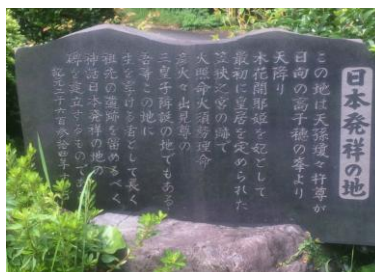 日本発祥の地
この地は天孫瓊々杵尊が
日向の高千穂の峯より
天降り
木花開耶姫を妃として
最初に皇居を定められた
笠狭之宮の跡で
火照命火須勢理命
火々出見尊の
三皇子降誕の地でもある
吾等この地に
生を享ける者として長く
祖先の遺跡を留めるべく
神話日本発祥の地の
碑を建立するものである
紀元二千六百参拾四年十